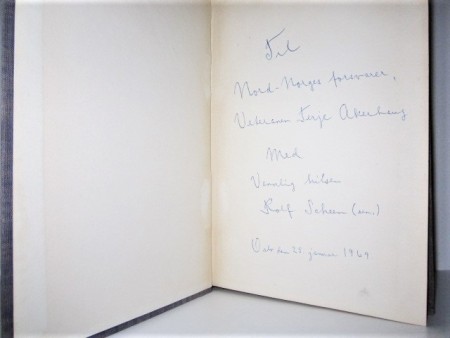 Til
Nord-Norges forsvarer,
Veteranen Terje Akerhaug
Med
Vennlig hilsen
Rolf Scheen (sen.)
Oslo den 21. januar 1969